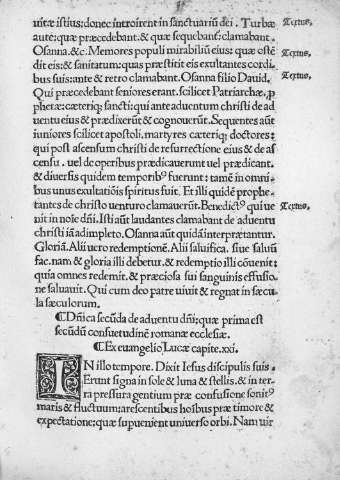 uitæ istius: donec introirent in sanctuariũ dei. Turbæ
aute: quæ præcedebant: & quæ sequebant: clamabant. Textus.
Osanna. &c. Memores populi mirabiliũ eius: quæ osté
dit eis: & sanitatum: quas præstitit eis exultantes cordi- Textus.
bus suis: ante & retro clamabant. Osanna filio Dauid. Textus.
Qui præcedebant seniores erant. scilicet Patriarchæ. p
phetæ: cæteriq; sancti: qui ante aduentum christi de ad
uentu eius & prædixerũt & cognouerũt. Sequentes aũt
iuniores scilicet apostoli, martyres cæteriq; doctores:
qui post ascensum christi de resurrectione eius & de as
censu. uel de operibus prædicauerunt uel prædicant.
& diuersis quidem temporib9 fuerunt: tamẽ in omni-
bus unus exultatiõis spiritus fuit. Et illi quidẽ prophe-
tantes de christo uenturo clamauerũt. Benedict9 qui ue Textus.
nit in noie dñi. Isti aũt laudantes clamabant de aduentu
christi iã adimpleto. Osanna aũt quidã interprætantur.
Gloriã. Alii uero redemptionẽ. Alii saluifica. siue saluũ
fac. nam & gloria illi debetur. & redemptio illi cõuenit:
quia omnes redemit. & præciosa sui sanguinis effusio-
ne saluauit. Qui cum deo patre uiuit & regnat in sæcu
la sæculorum.
¶ Dñica secũda de aduentu dñi: quæ prima est
secũdũ consuetudinẽ romanæ ecclesiæ.
¶ Ex euangelio Lucæ capite. xxi.
IN illo tempore. Dixit Iesus discipulis suis.
Erunt signa in sole & luna & stellis. & in ter-
ra pressura gentium præ confusione sonit9
maris & fluctuum: arescentibus hoibus præ timore &
expectatione: quæ supuenient uniuerso orbi. Nam uir